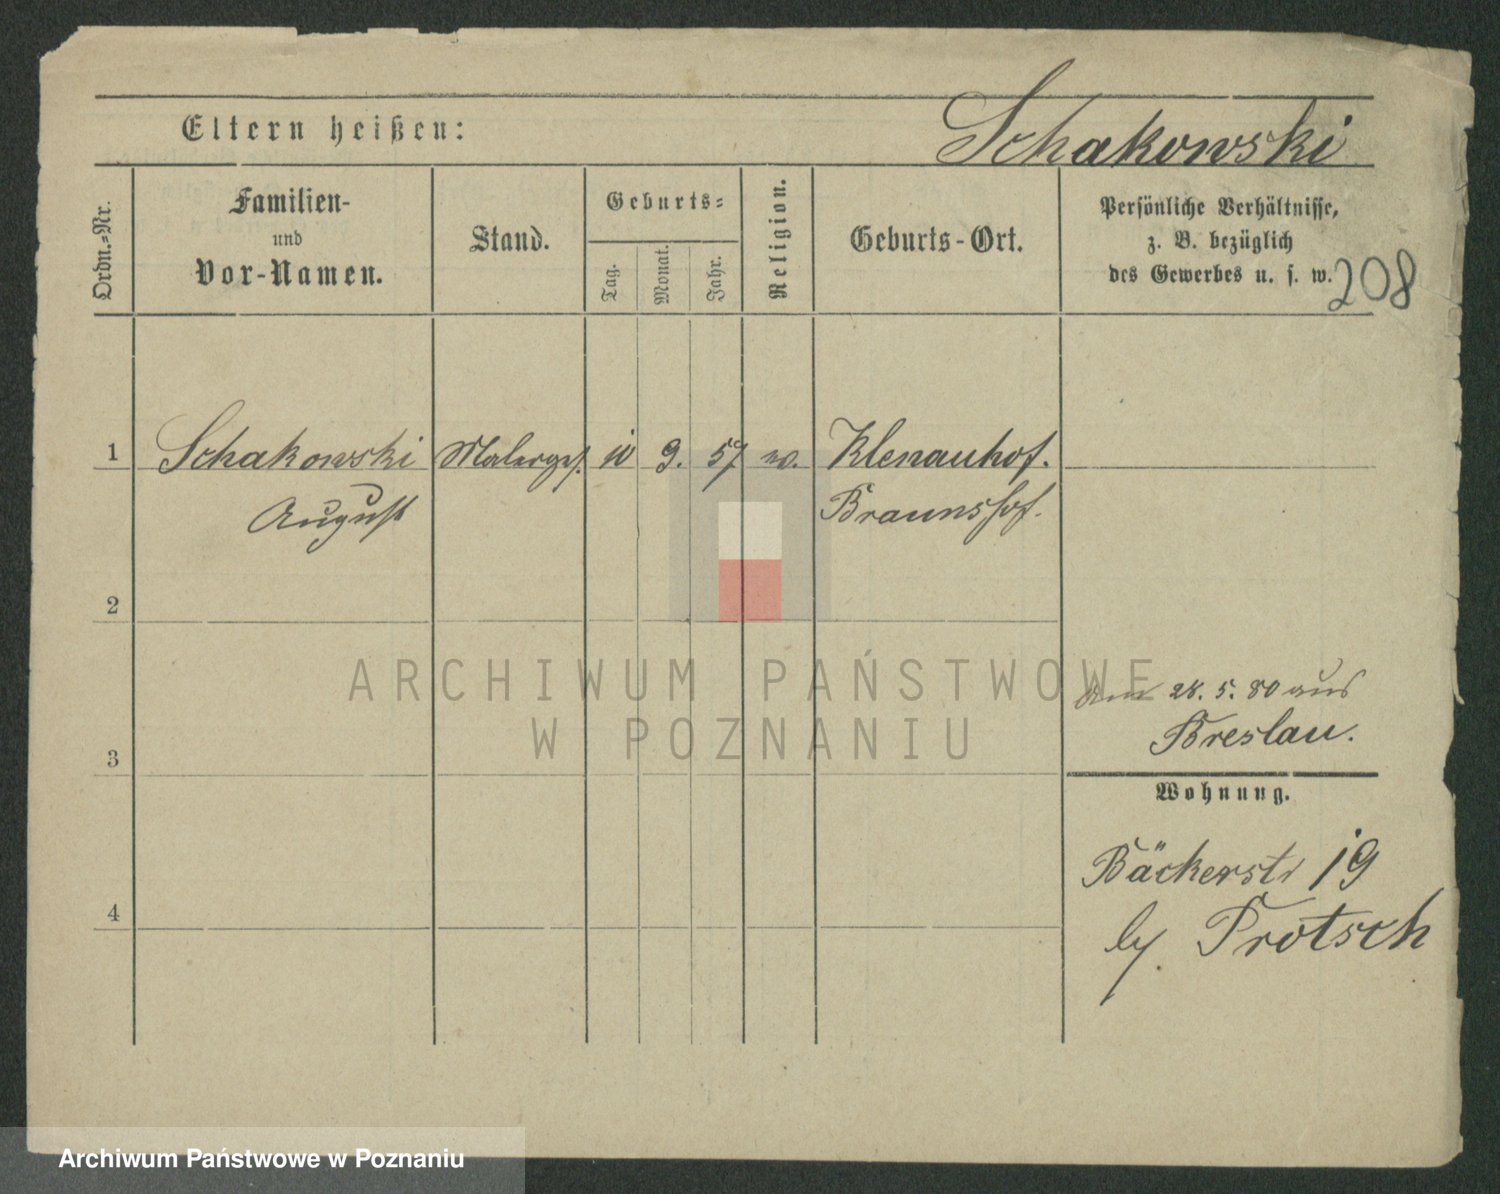 Schakowski
Eltern heißen:
Ordn.=Nr.
Familien-
und
Vor-Namen.
Stand.
Geburts=
Tag.
Monat.
Jahr.
Religion.
Geburts-Ort.
Persönliche Verhältnisse,
z. B. bezüglich
des Gewerbes u. s. w.
208
1 Schakowski Malerges. 10 9. 57 Klenauhof.
August Braunshof.
2
3
4
am 28. 5. 80 aus
Breslau.
Wohnung.
Bäckerstr 19
by Trotsch
ARCHIWUM PAŃSTWOWE
W POZNANIU
Archiwum Państwowe w Poznaniu